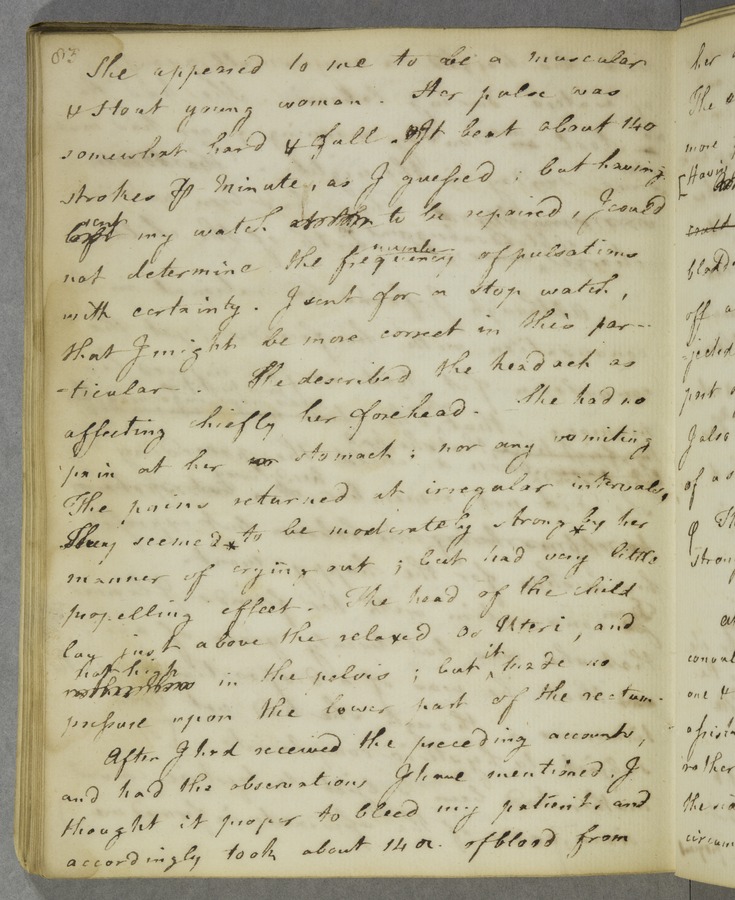 83
She appeared to me to be a muscular
& stout young woman. Her pulse was
somewhat hard & full. It beat about 140
strokes ⅌ Minute, as I guessed; but having
sent
left my watch to be repaired, I could
number
not determine the frequency of pulsations
with certainty. I sent for a stop watch,
that I might be more correct in this par-
-ticular. She described the headach as
affecting chiefly her forehead. She had no
pain at her stomach; nor any vomiting
The pains returned at irregular intervals.
They seemed * to be moderately strong * by her
manner of crying out; but had very little
propelling effect. The head of the child
lay just above the relaxed Os Uteri, and
half high it
in the pelvis; but ^ made no
pressure upon the lower part of the rectum.
After I had received the preceding accounts,
and had the observations I have mentioned, I
thought it proper to bleed my patient, and
accordingly took about 14 oz. of blood from
her
The
more
[Having
could
blood
off a
-jected
part
I also
of a s
Th
stron
convul
one &
assista
rather
the
circum